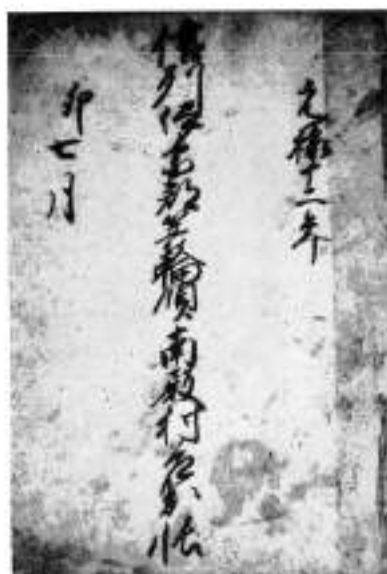 元禄十二年
信州伊奈郡箕輪領南殿村帳
卯七月